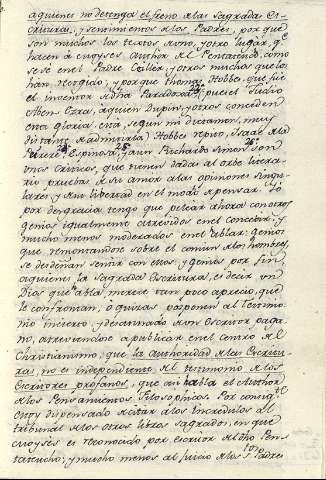 aquienes no detenga el freno de las sagradas Es-
crituras, y sentimientos de los Padres, porque
son muchos los textos de uno, y otro lugar, qe
hacen á Moyses Author del Pentateuco, como
se ve en el Padre Calier, y otros muchos que lo
han recogido; y porque Thomas Hobbes, que fue
el inventor de dha Paradoxa, pues el Judio
Aben-Ezra, aquien Dupin, y otros conceden
esta gloria, está, segun mi dictamen, muy
distante de admitirla) Hobbes repito, Isaac de la
Pereire, Espinosa, y aun Richardo Simon son
unos Criticos, que tienen dadas al orbe litera-
rio pruebas de su amor a las opiniones singu-
lares, y de su libertad en el modo de pensar. Yo
por desgracia tengo que pelear ahora con otros
genios igualmente atrevidos en el concebir, y
mucho menos moderados en el ablar: genios
que remontandose sobre el comun de los hombres,
se desdeñan sentir con ellos, y genios por fin,
aquienes la Sagrada Escritura, es decir un
Dios que abla, merece tan poco aprecio, que
le confrontan, ó quizas posponen al Testimo-
nio incierto, y desatinado de un Escritor paga-
no, atreviendose a publicar en el centro del
Christianismo, que la authoridad de las Escritu-
ras, no es independiente del testimonio de los
Escritores profanos, que asi habla el Author
de los Pensamientos Filosophicos. Por consigte
estoy dispensado de citar a los Incredulos al
tribunal de los otros libros sagrados, en que
Moyses es reconocido por escritor del dho Pen-
tateucho; y mucho menos al juicio de los Stos Padres